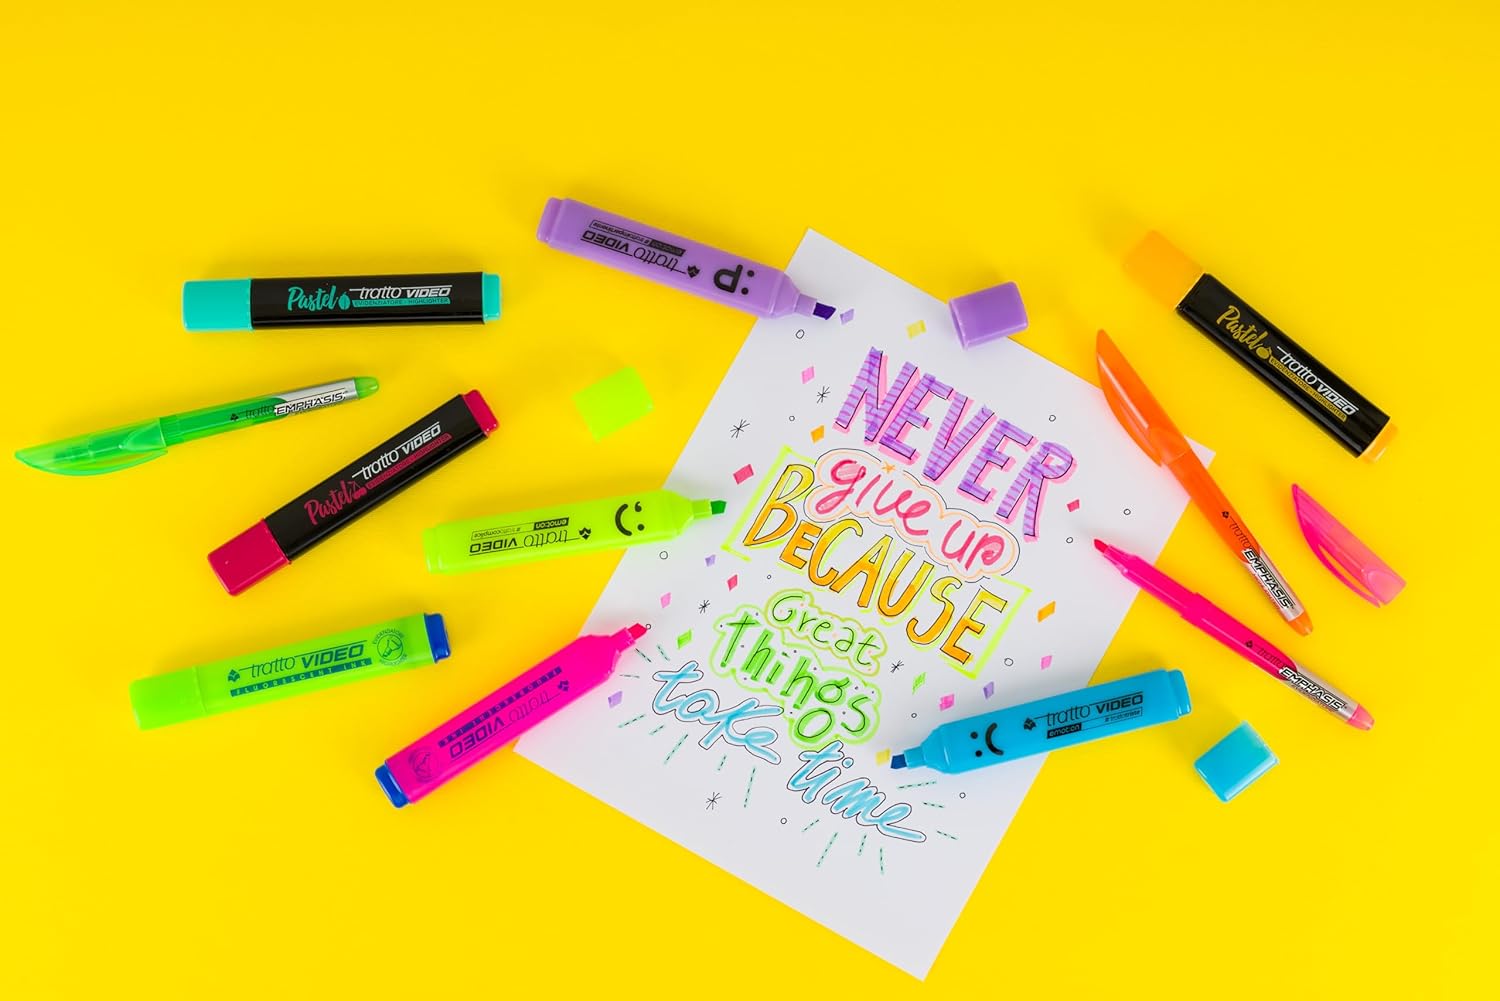 :p
tratto VIDEO
emotion
Pastel tratto VIDEO
EVIDENZIATORE - HIGHLIGHTER
Pastel tratto VIDEO
EVIDENZIATORE - HIGHLIGHTER
tratto EMPHASIS
Pastel tratto VIDEO
EVIDENZIATORE - HIGHLIGHTER
tratto VIDEO
emotion
tratto EMPHASIS
tratto VIDEO
FLUORESCENT INK
tratto VIDEO
tratto VIDEO
emotion
tratto EMPHASIS
NEVER
give up
BeCAUSE
Great
Things
take time